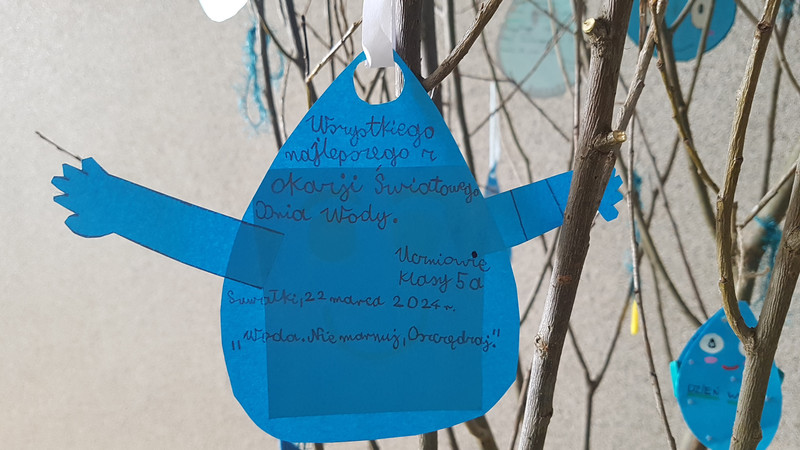 Wszystkiego
najlepszego z
okazji Światowego
Dnia Wody.
Uczniowie
Klasy 5a
Suwałki, 22 marca 2024 r.
"Woda. Nie marnuj, Oszczędzaj."
DZIEŃ W